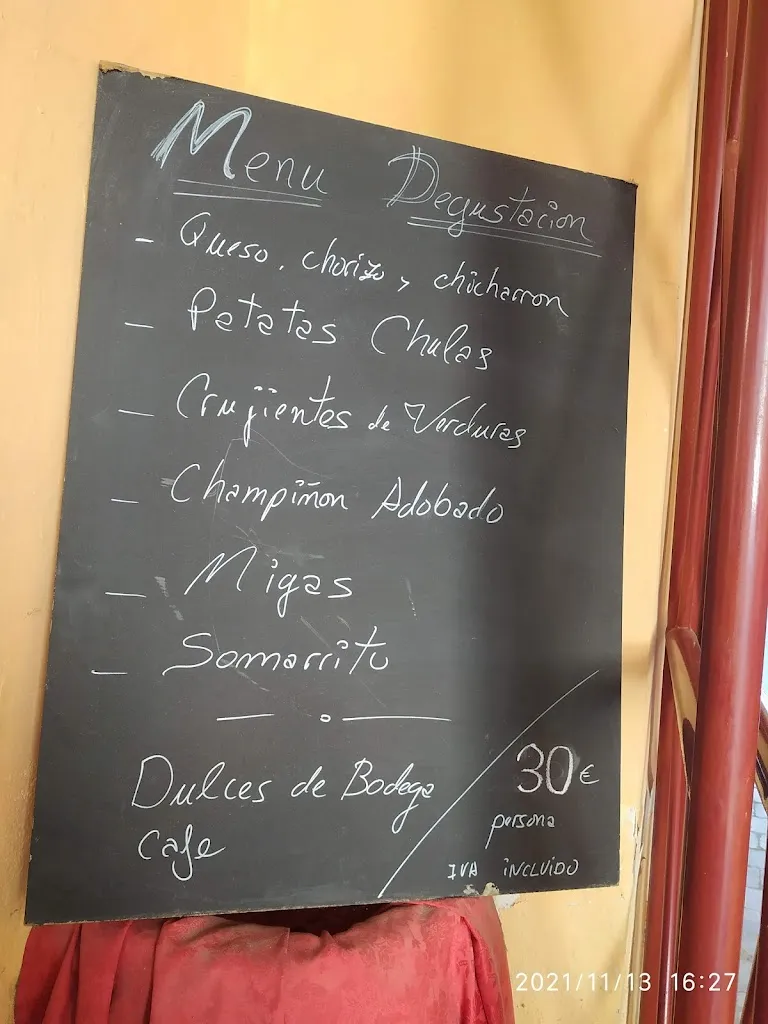 Menu Degustacion
- Queso, chorizo y chicharron
- Patatas Chulas
- Crujientes de Verduras
- Champiñon Adobado
- Migas
- Somarrito
Dulces de Bodega
Cafe
30€
persona
IVA INCLUIDO
2021/11/13 16:27